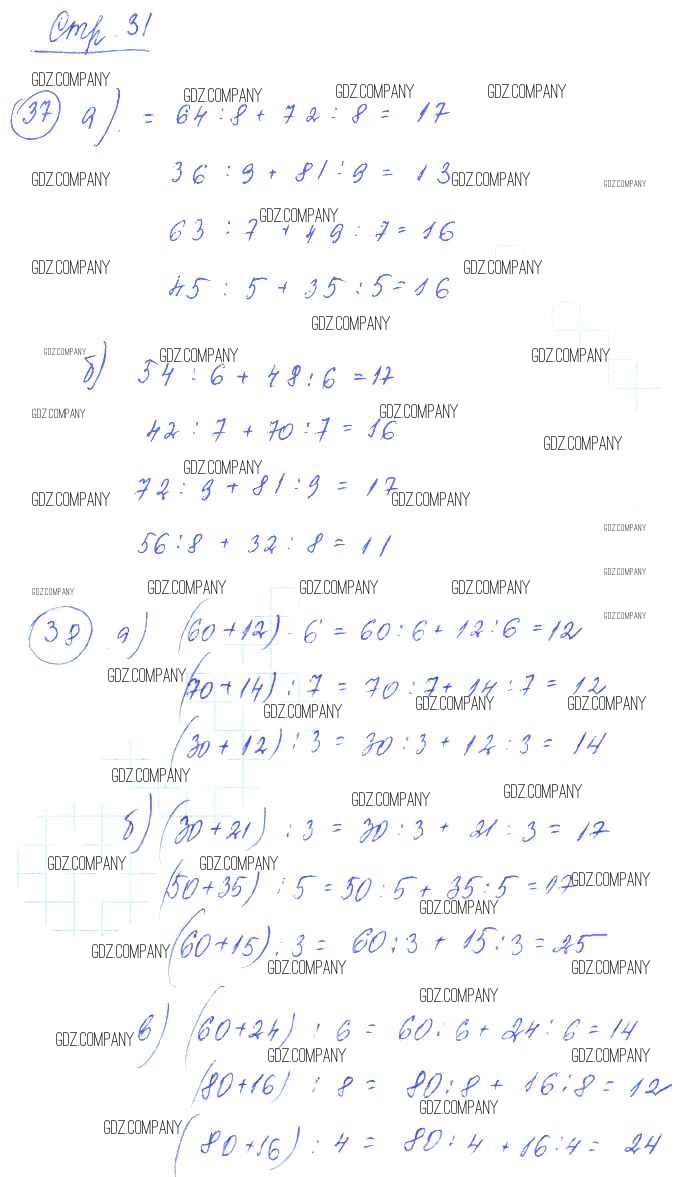 Стр. 31
GDZ.COMPANY GDZ.COMPANY GDZ.COMPANY GDZ.COMPANY
37 а) = 64 : 8 + 72 : 8 = 17
36 : 9 + 81 : 9 = 13
GDZ.COMPANY GDZ.COMPANY GDZ.COMPANY
GDZ.COMPANY
63 : 7 + 49 : 7 = 16
GDZ.COMPANY GDZ.COMPANY
45 : 5 + 35 : 5 = 16
GDZ.COMPANY
GDZ.COMPANY GDZ.COMPANY GDZ.COMPANY
б) 54 : 6 + 48 : 6 = 17
GDZ.COMPANY GDZ.COMPANY
42 : 7 + 70 : 7 = 16
GDZ.COMPANY
GDZ.COMPANY
72 : 9 + 81 : 9 = 17
GDZ.COMPANY GDZ.COMPANY
GDZ.COMPANY
56 : 8 + 32 : 8 = 11
GDZ.COMPANY
GDZ.COMPANY GDZ.COMPANY GDZ.COMPANY GDZ.COMPANY
GDZ.COMPANY
38 а) (60 + 12) : 6 = 60 : 6 + 12 : 6 = 12
GDZ.COMPANY
(70 + 14) : 7 = 70 : 7 + 14 : 7 = 12
GDZ.COMPANY GDZ.COMPANY GDZ.COMPANY
(30 + 12) : 3 = 30 : 3 + 12 : 3 = 14
GDZ.COMPANY
GDZ.COMPANY GDZ.COMPANY
б) (30 + 21) : 3 = 30 : 3 + 21 : 3 = 17
GDZ.COMPANY GDZ.COMPANY GDZ.COMPANY
(50 + 35) : 5 = 50 : 5 + 35 : 5 = 17
GDZ.COMPANY
(60 + 15) : 3 = 60 : 3 + 15 : 3 = 25
GDZ.COMPANY GDZ.COMPANY GDZ.COMPANY
GDZ.COMPANY
в) (60 + 24) : 6 = 60 : 6 + 24 : 6 = 14
GDZ.COMPANY
GDZ.COMPANY GDZ.COMPANY
(80 + 16) : 8 = 80 : 8 + 16 : 8 = 12
GDZ.COMPANY
GDZ.COMPANY
(80 + 16) : 4 = 80 : 4 + 16 : 4 = 24